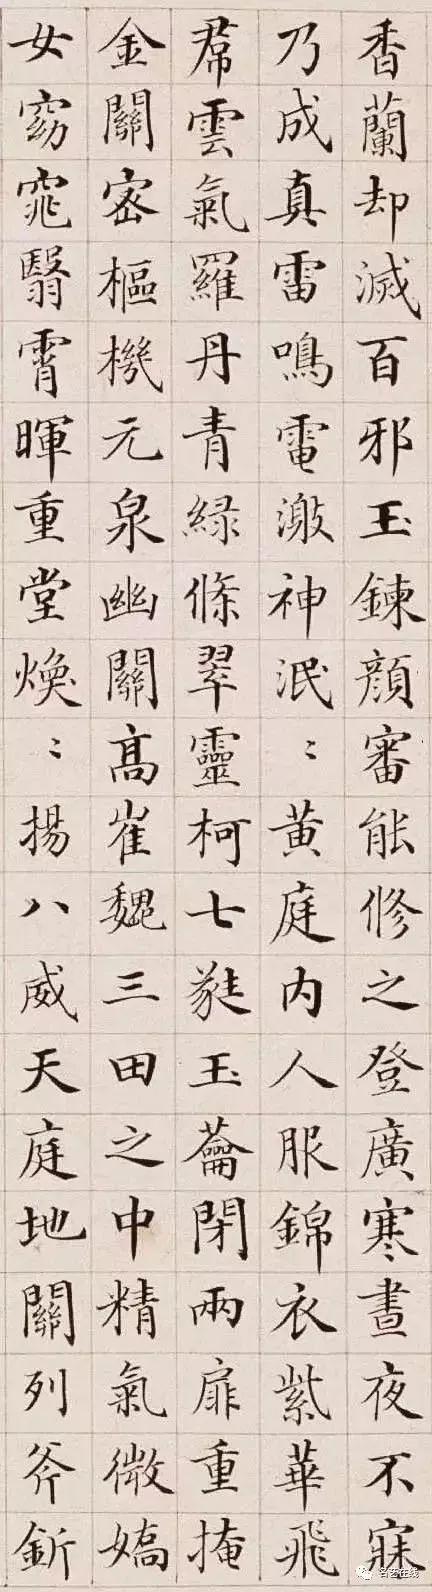 香蘭却滅百邪玉鍊顔審能修之登廣寒晝夜不寐
乃成真雷鳴電激神泯〻黄庭内人服錦衣紫華飛
帬雲氣羅丹青緑條翠靈柯七蕤玉蘥閉兩扉重掩
金關密樞機元泉幽關髙崔巍三田之中精氣微嬌
女窈窕翳霄暉重堂煥〻揚八威天庭地關列斧釿
名艺在线